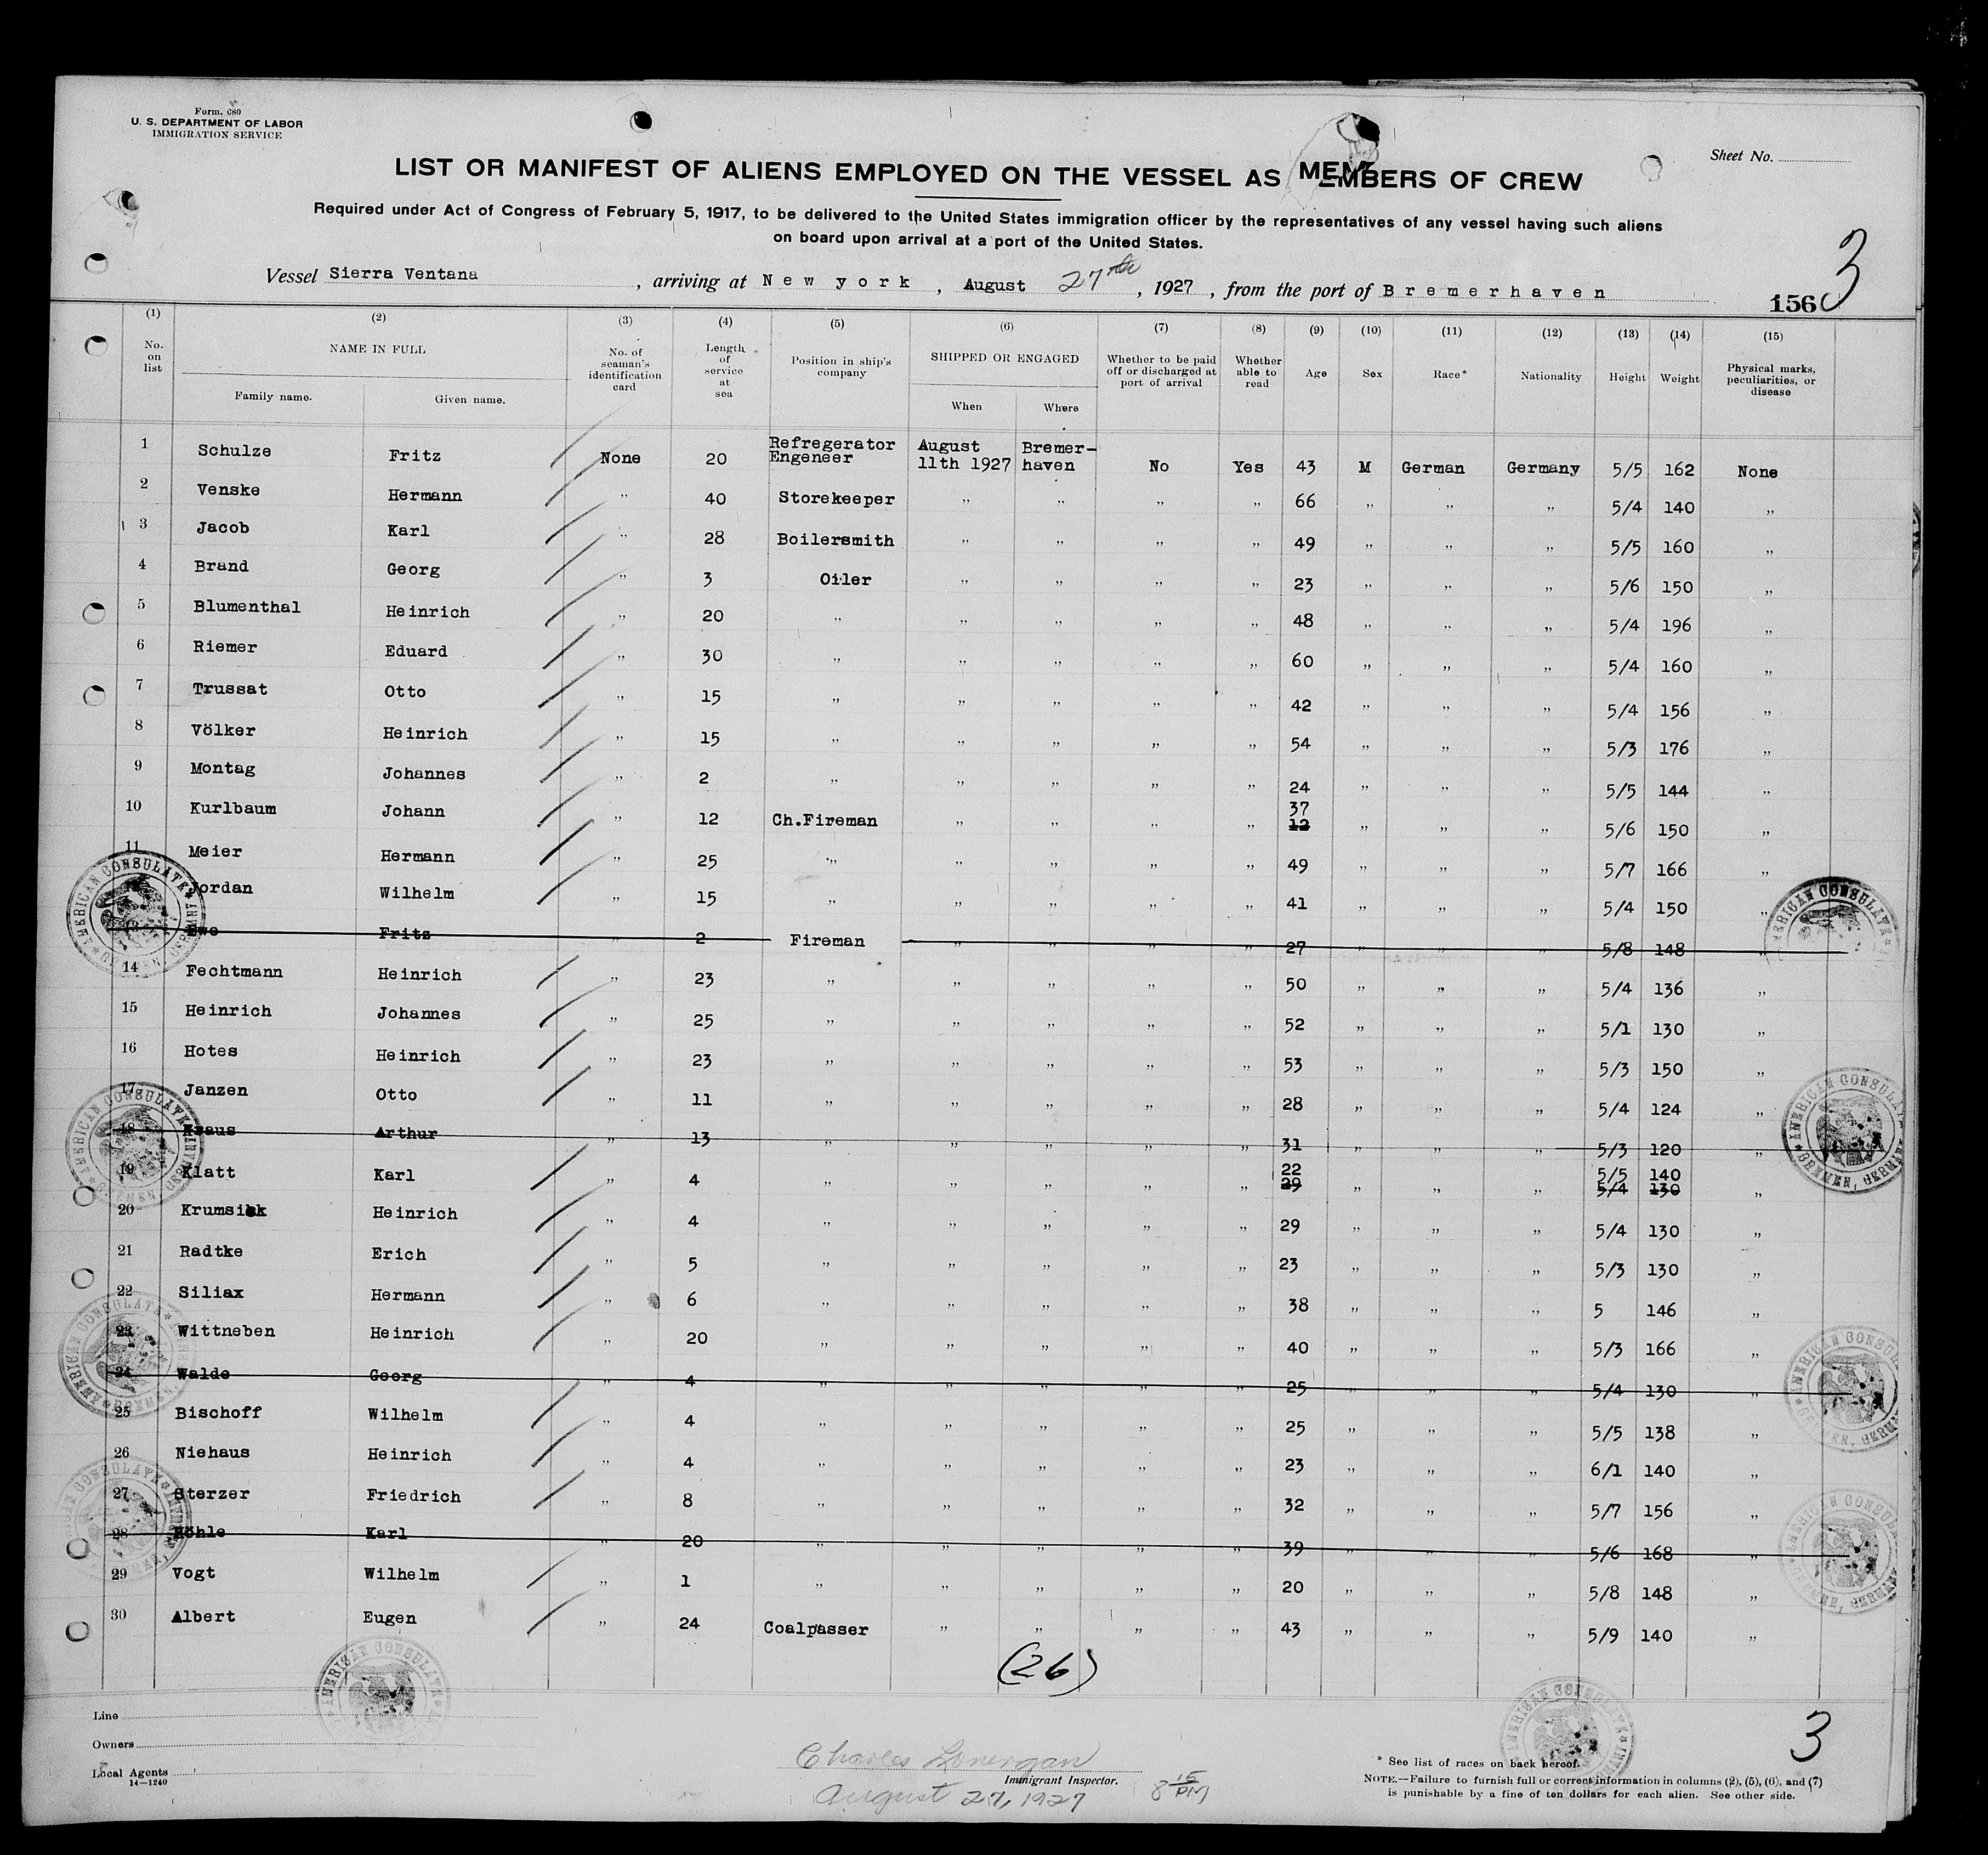 Form. 680
U. S. DEPARTMENT OF LABOR
IMMIGRATION SERVICE
Sheet No.
LIST OR MANIFEST OF ALIENS EMPLOYED ON THE VESSEL AS MEMBERS OF CREW
Required under Act of Congress of February 5, 1917, to be delivered to the United States immigration officer by the representatives of any vessel having such aliens
on board upon arrival at a port of the United States.
Vessel Sierra Ventana , arriving at New york , August 27th , 1927 , from the port of Bremerhaven
156 3
(1) (2) (3) (4) (5) (6) (7) (8) (9) (10) (11) (12) (13) (14) (15)
No. on list NAME IN FULL Family name. Given name. No. of seaman's identification card Length of service at sea Position in ship's company SHIPPED OR ENGAGED When Where Whether to be paid off or discharged at port of arrival Whether able to read Age Sex Race* Nationality Height Weight Physical marks, peculiarities, or disease
1 Schulze Fritz None 20 Refregerator Engeneer August 11th 1927 Bremer-haven No Yes 43 M German Germany 5/5 162 None
2 Venske Hermann „ 40 Storekeeper „ „ „ „ 66 „ „ „ 5/4 140 „
3 Jacob Karl „ 28 Boilersmith „ „ „ „ 49 „ „ „ 5/5 160 „
4 Brand Georg „ 3 Oiler „ „ „ „ 23 „ „ „ 5/6 150 „
5 Blumenthal Heinrich „ 20 „ „ „ „ „ 48 „ „ „ 5/4 196 „
6 Riemer Eduard „ 30 „ „ „ „ „ 60 „ „ „ 5/4 160 „
7 Trussat Otto „ 15 „ „ „ „ „ 42 „ „ „ 5/4 156 „
8 Völker Heinrich „ 15 „ „ „ „ „ 54 „ „ „ 5/3 176 „
9 Montag Johannes „ 2 „ „ „ „ „ 24 „ „ „ 5/5 144 „
10 Kurlbaum Johann „ 12 Ch.Fireman „ „ „ „ 37 12 „ „ „ 5/6 150 „
11 Meier Hermann „ 25 „ „ „ „ „ 49 „ „ „ 5/7 166 „
12 Jordan Wilhelm „ 15 „ „ „ „ „ 41 „ „ „ 5/4 150 „
13 Fritz „ 2 Fireman „ „ „ „ 27 „ „ „ 5/8 148 „
14 Fechtmann Heinrich „ 23 „ „ „ „ „ 50 „ „ „ 5/4 136 „
15 Heinrich Johannes „ 25 „ „ „ „ „ 52 „ „ „ 5/1 130 „
16 Hotes Heinrich „ 23 „ „ „ „ „ 53 „ „ „ 5/3 150 „
17 Janzen Otto „ 11 „ „ „ „ „ 28 „ „ „ 5/4 124 „
18 Kraus Arthur „ 13 „ „ „ „ „ 31 „ „ „ 5/3 120 „
19 Klatt Karl „ 4 „ „ „ „ „ 22 29 „ „ „ 5/5 5/4 140 130 „
20 Krumsiek Heinrich „ 4 „ „ „ „ „ 29 „ „ „ 5/4 130 „
21 Radtke Erich „ 5 „ „ „ „ „ 23 „ „ „ 5/3 130 „
22 Siliax Hermann „ 6 „ „ „ „ „ 38 „ „ „ 5 146 „
23 Wittneben Heinrich „ 20 „ „ „ „ „ 40 „ „ „ 5/3 166 „
24 Walde Georg „ 4 „ „ „ „ „ 25 „ „ „ 5/4 130 „
25 Bischoff Wilhelm „ 4 „ „ „ „ „ 25 „ „ „ 5/5 138 „
26 Niehaus Heinrich „ 4 „ „ „ „ „ 23 „ „ „ 6/1 140 „
27 Sterzer Friedrich „ 8 „ „ „ „ „ 32 „ „ „ 5/7 156 „
28 Höhle Karl „ 20 „ „ „ „ „ 39 „ „ „ 5/6 168 „
29 Vogt Wilhelm „ 1 „ „ „ „ „ 20 „ „ „ 5/8 148 „
30 Albert Eugen „ 24 Coalpasser „ „ „ „ 43 „ „ „ 5/9 140 „
(26)
AMERICAN CONSULATE BREMEN, GERMANY
Line
Owners
Local Agents
14—1240
Charles Lonergan
Immigrant Inspector.
August 27, 1927 8 15 PM
3
* See list of races on back hereof.
NOTE.—Failure to furnish full or correct information in columns (2), (5), (6), and (7)
is punishable by a fine of ten dollars for each alien. See other side.